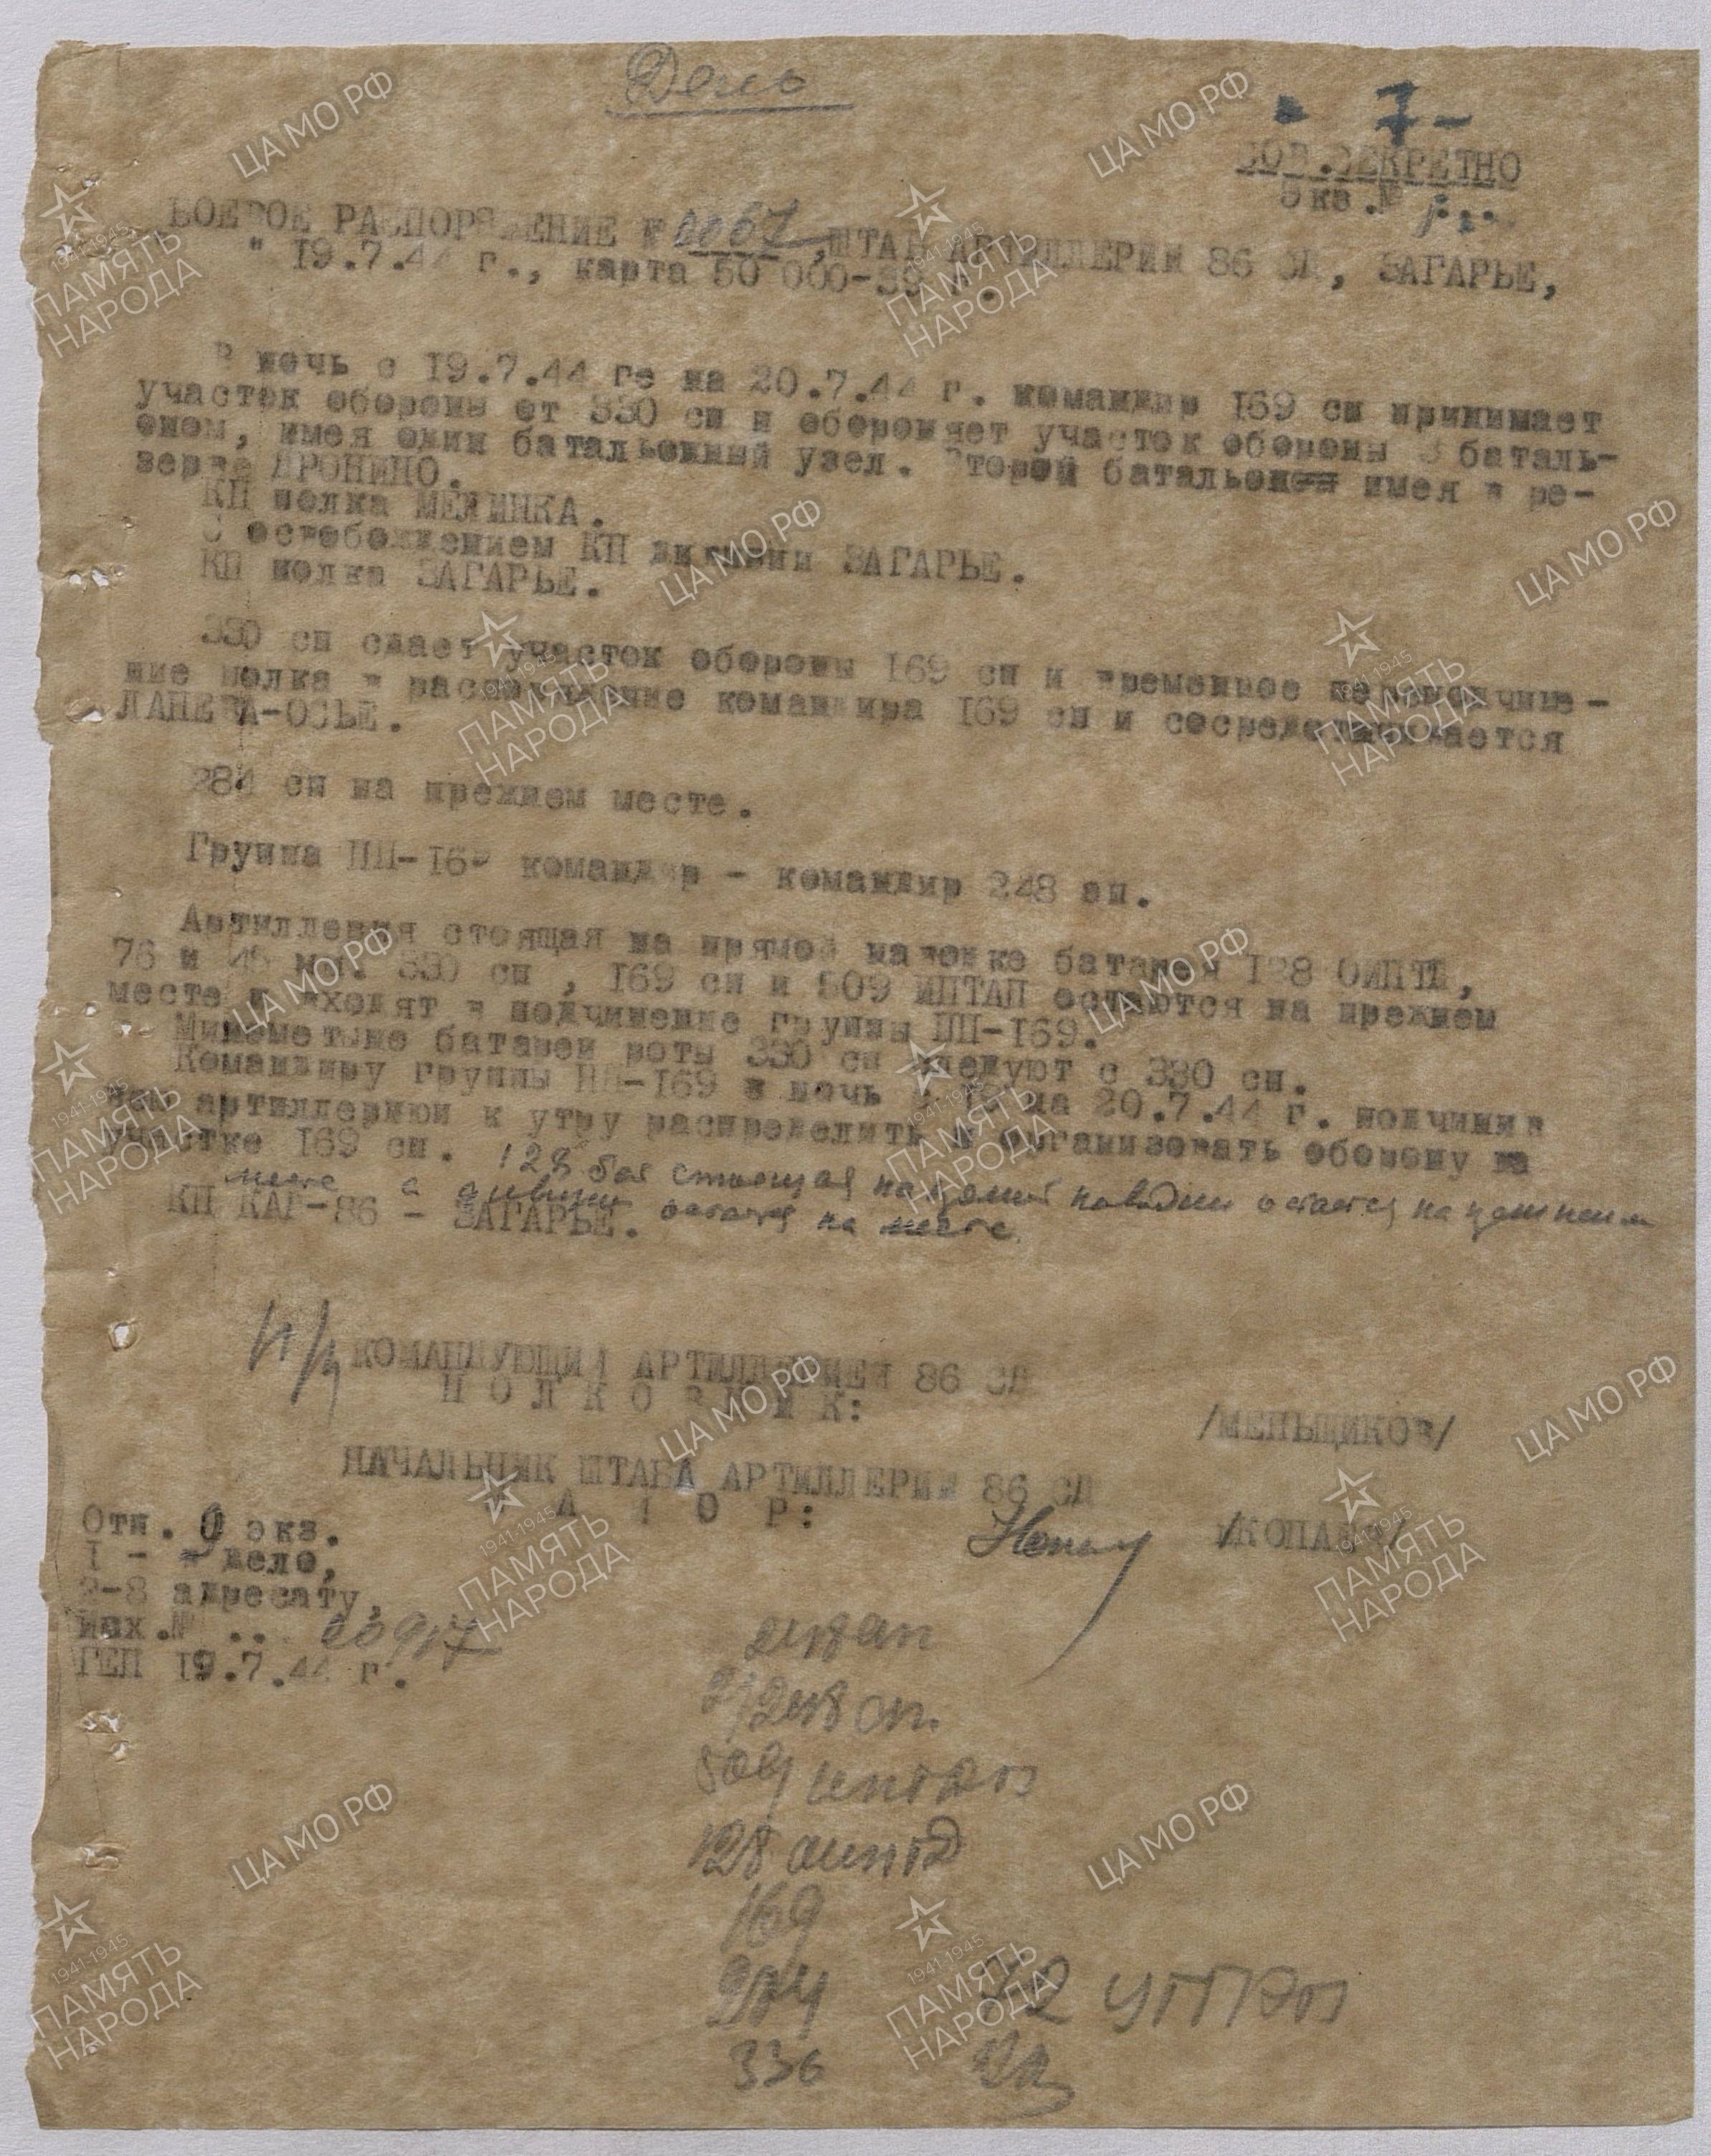 Дело
- 7 -
СОВ.СЕКРЕТНО
Экз.№
БОЕВОЕ РАСПОРЯЖЕНИЕ № 0067, ШТАБ АРТИЛЛЕРИИ 86 СД, ЗАГАРЬЕ,
" 19.7.44 г., карта 50 000-39 г.
В ночь с 19.7.44 ге на 20.7.44 г. командир 169 сп принимает
участок обороны от 330 сп и обороняет участок обороны 3 баталь-
оном, имея один батальонный узел. Второй батальон имея в ре-
зерве ДРОНИНО.
КП полка МЕЛИНКА.
С освобождением КП дивизии ЗАГАРЬЕ.
КП полка ЗАГАРЬЕ.
330 сп сдает участок обороны 169 сп и временное переподчине-
ние полка в распоряжение командира 169 сп и сосредотачивается
ЛАНЕВА-ОСЬЕ.
284 сп на прежнем месте.
Группа ПП-169 командир - командир 248 ап.
Артиллерия стоящая на прямой наводке батарея 128 ОИПТД,
76 и 45 мм. 330 сп , 169 сп и 509 ИПТАП остаются на прежнем
месте и входят в подчинение группы ПП-169.
Минометные батареи роты 330 сп следуют с 330 сп.
Командиру группы ПП-169 в ночь с 19 на 20.7.44 г. подчинив
всю артиллерию к утру распределить и организовать оборону на
участке 169 сп. 128 бат стоящая на прямой наводки остается на прежнем
месте а остается на месте
КП КАГ-86 - ЗАГАРЬЕ.
КОМАНДУЮЩИЙ АРТИЛЛЕРИЕЙ 86 СД
П О Л К О В Н И К:
/МЕНЬЩИКОВ/
НАЧАЛЬНИК ШТАБА АРТИЛЛЕРИИ 86 СД
М А Й О Р:
Отп. 9 экз.
1 - в дело,
2-8 адресату,
Исх.№
ГЕП 19.7.44 г.
248 ап
2/248 ап.
509 иптап
128 оиптд
169
284
330